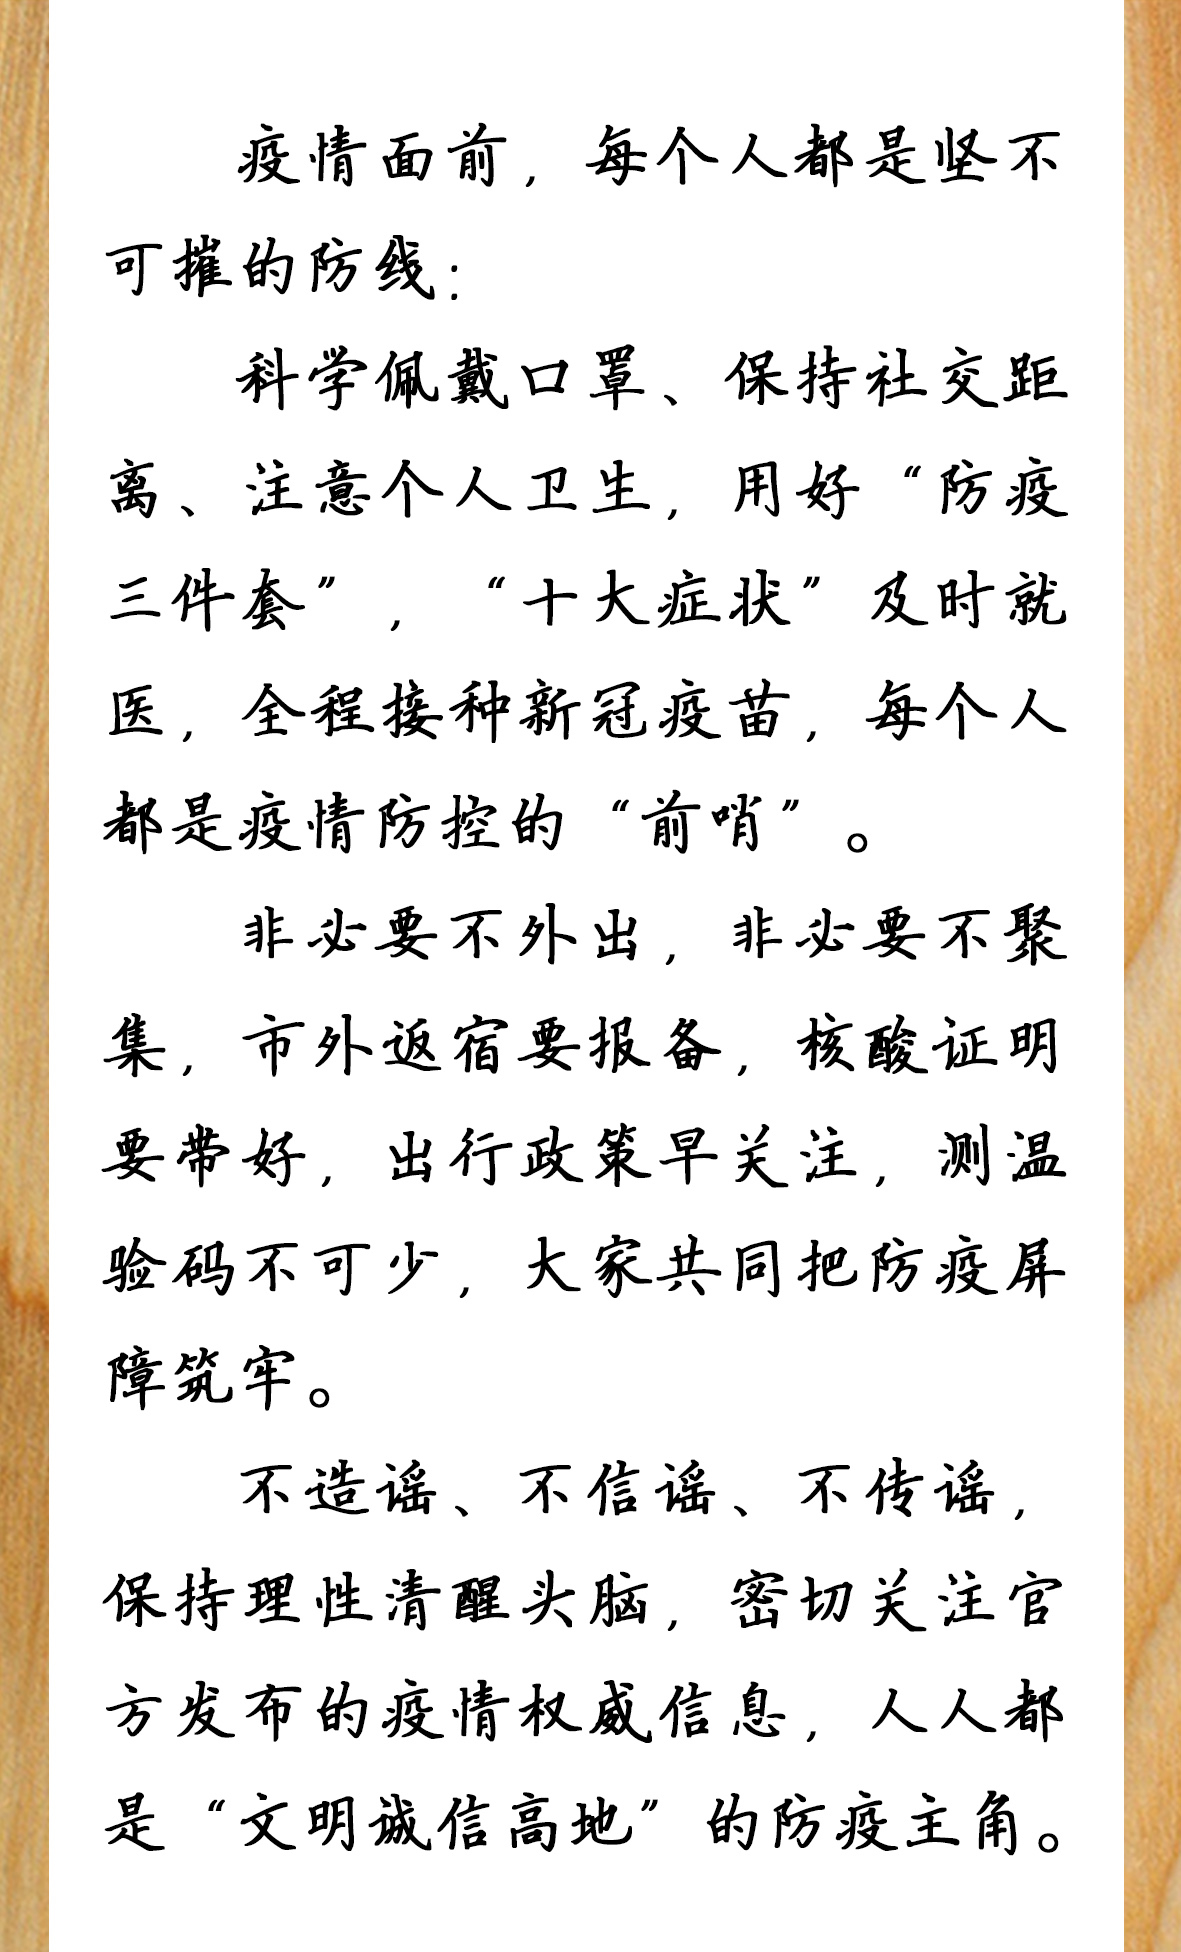 疫情面前，每个人都是坚不
可摧的防线：
科学佩戴口罩、保持社交距
离、注意个人卫生，用好“防疫
三件套”，“十大症状”及时就
医，全程接种新冠疫苗，每个人
都是疫情防控的“前哨”。
非必要不外出，非必要不聚
集，市外返宿要报备，核酸证明
要带好，出行政策早关注，测温
验码不可少，大家共同把防疫屏
障筑牢。
不造谣、不信谣、不传谣，
保持理性清醒头脑，密切关注官
方发布的疫情权威信息，人人都
是“文明诚信高地”的防疫主角。